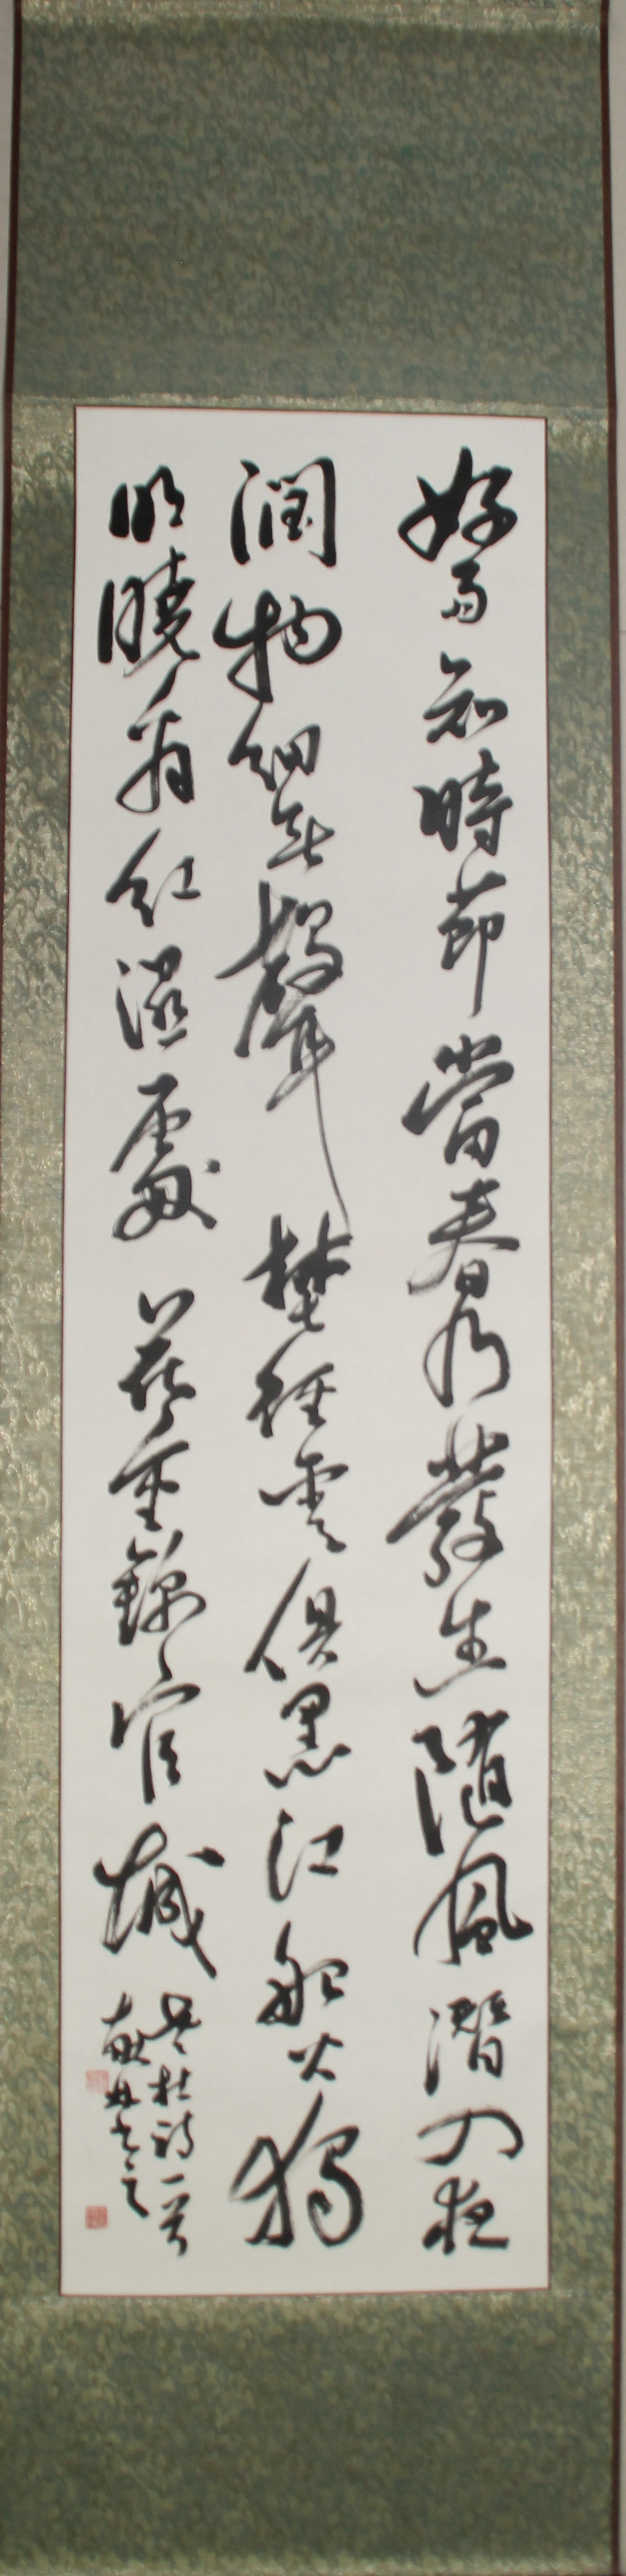 好雨知時節當春乃發生隨風潛入夜
潤物細無聲埜徑雲俱黑江船火獨
明曉看紅濕處花重錦官城
杜詩一首